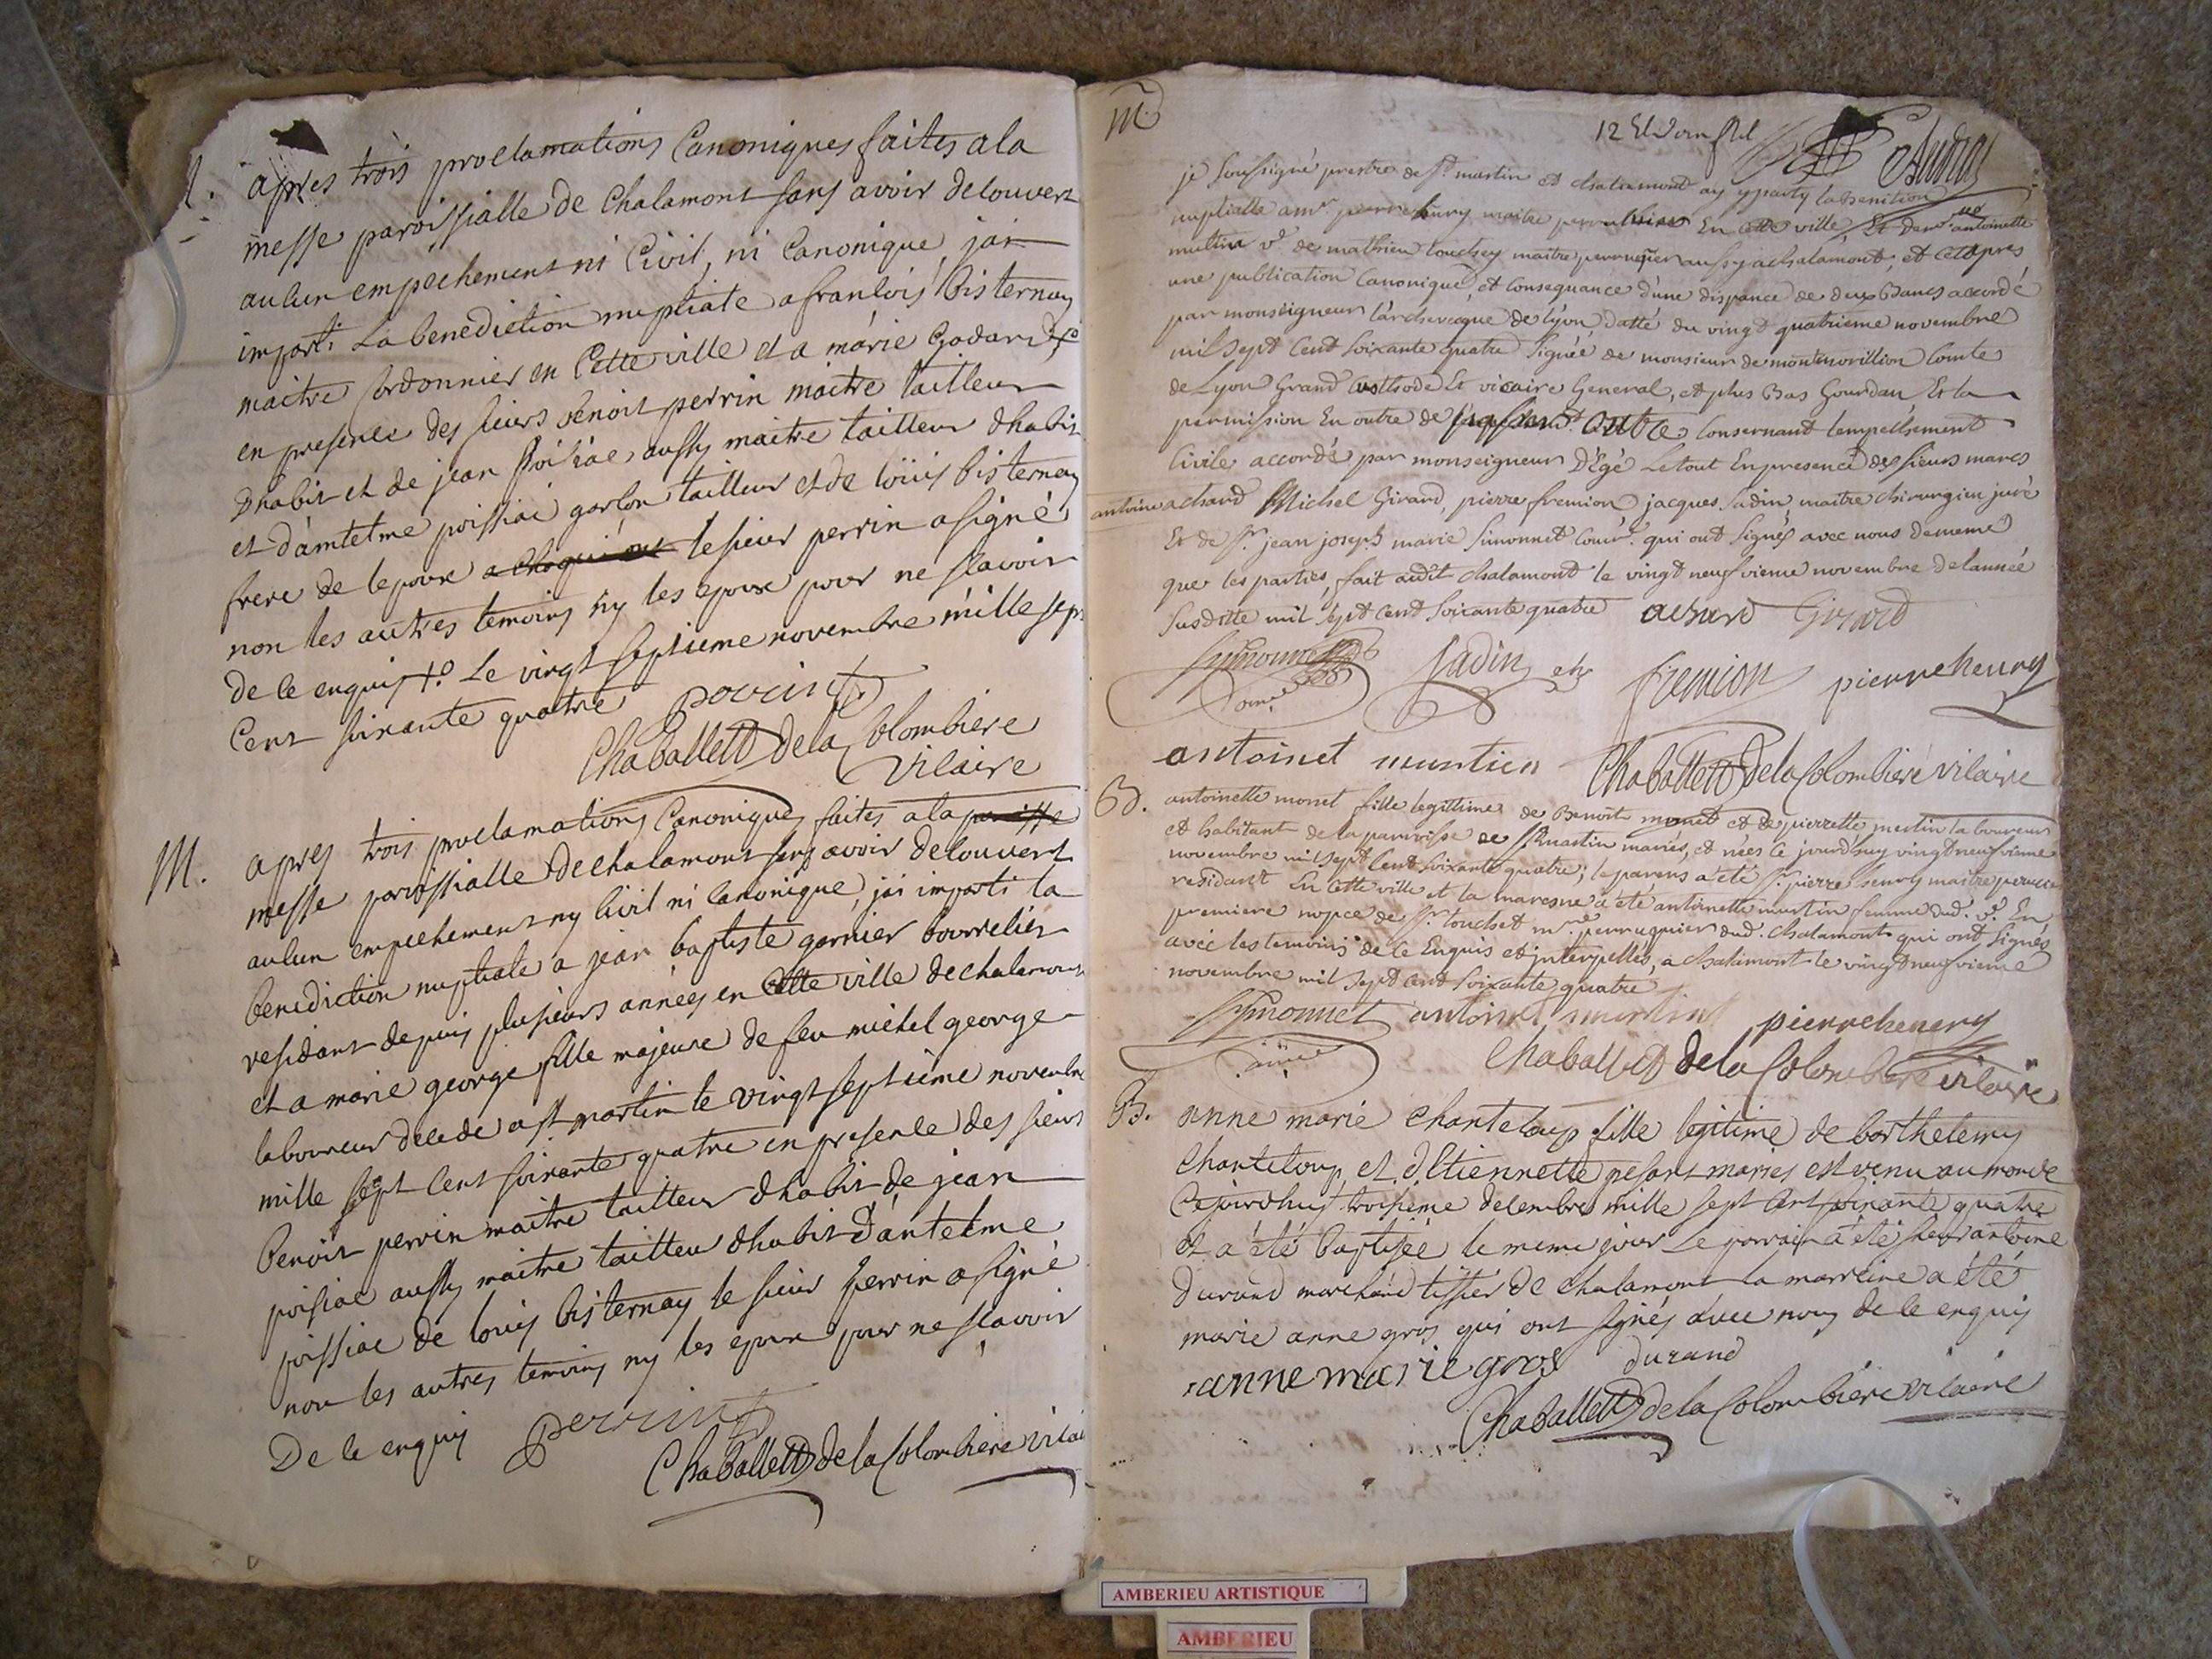 M.
apres trois proclamations Canoniques faites a la
messe paroissialle de Chalamont sans avoir decouvert
aucun empechement ni Civil, ni Canonique, jai
imparti La benediction nuptiale a francois bisternay
maitre Cordonnier en Cette ville et a marie Godard
en presence des sieurs benoit perrin maitre tailleur
Dhabit et de jean aussy maitre tailleur dhabit
et d'amtelme poissiac garcon tailleur et de loüis bisternay
frere de lepoux le sieur perrin a signé
non les autres temoins ny les epoux pour ne scavoir
de ce enquis Le vingt septieme novembre mille sept
Cent soixante quatre
perrin
Chaballett de la Colombiere
vicaire
M. apres trois proclamations Canoniques faites a la
messe paroissialle de chalamont sans avoir decouvert
aucun empechement ny Civil ni Canonique, jai imparti la
benediction nuptiale a jean baptiste garnier bourrelier
residant depuis plusieurs années en Cette ville de chalamont
et a marie george fille majeure de feu michel george
laboureur decedé a st martin le vingt septieme novembre
mille sept Cent soixante quatre en presence des sieurs
benoit perrin maitre tailleur dhabit de jean
poisiac aussy maitre tailleur dhabit d'antelme
poissiac de louis bisternay le sieur perrin a signé
non les autres temoins ny les epoux pour ne scavoir
De ce enquis perrin
Chaballett de la Colombiere vicai
m
12
je soussigné prestre de st martin et chalamont ay la benition
nuptialle a mr pierre henry maitre En cette ville, Et antoinette
ve de mathieu touchey maitre perruquier aussy a chalamont, et apres
une publication Canonique, et consequance d'une dispance de deux bancs accordé
par monseigneur l'archeveque de lyon, datté du vingt quatrieme novembre
mil sept Cent soixante quatre signée de monsieur de montmorillion Comte
de Lyon Grand Custhode Et vicaire General, et plus bas Gourdan Et la
permission En outre de consernant l'empechement
Civile accordé par monseigneur Le tout En presence des sieurs marcs
antoine achard Michel Girard, pierre fremion jacques Jadin maitre chirurgien juré
Et de sr jean joseph marie simonnet qui ont signés avec nous de meme
que les parties, fait audit chalamont le vingt neufvieme novembre de l'année
susditte mil sept Cent soixante quatre achard Girard
Symonnet Jadin ch fremion pierre henry
ainé
antoinet Chaballett de la Colombiere vicaire
B. antoinette monet fille legittime de Benoit monet et de pierrette mertin laboureur
et habitant de la parroisse de st martin mariés, et née ce jourdhuy vingt neufvieme
novembre mil sept Cent soixante quatre; le parens a été sr pierre henry maitre
residant En Cette ville et la maresne a été antoinette femme dud. En
premiere nopce de sr touchet mre perruquier dud. chalamont qui ont signés
avec les temoins de ce Enquis et interpellés, a chalamont le vingt neufvieme
novembre mil sept cent soixante quatre
Symonnet antoinet pierre henery
ainé Chaballett de la Colombiere vicaire
B. anne marie Chanteloup fille legitime de barthelemy
Chanteloup et d'Etiennette mariés est venu au monde
Cejourdhuy troisieme decembre mille sept Cent soixante quatre
et a été baptisée le meme jour Le parrain a été sieur antoine
durand marchand tissier de chalamont la marreine a été
marie anne gros qui ont signés avec nous de ce enquis
anne marie gros durand
Chaballett de la Colombiere vicaire
AMBERIEU ARTISTIQUE
AMBERIEU